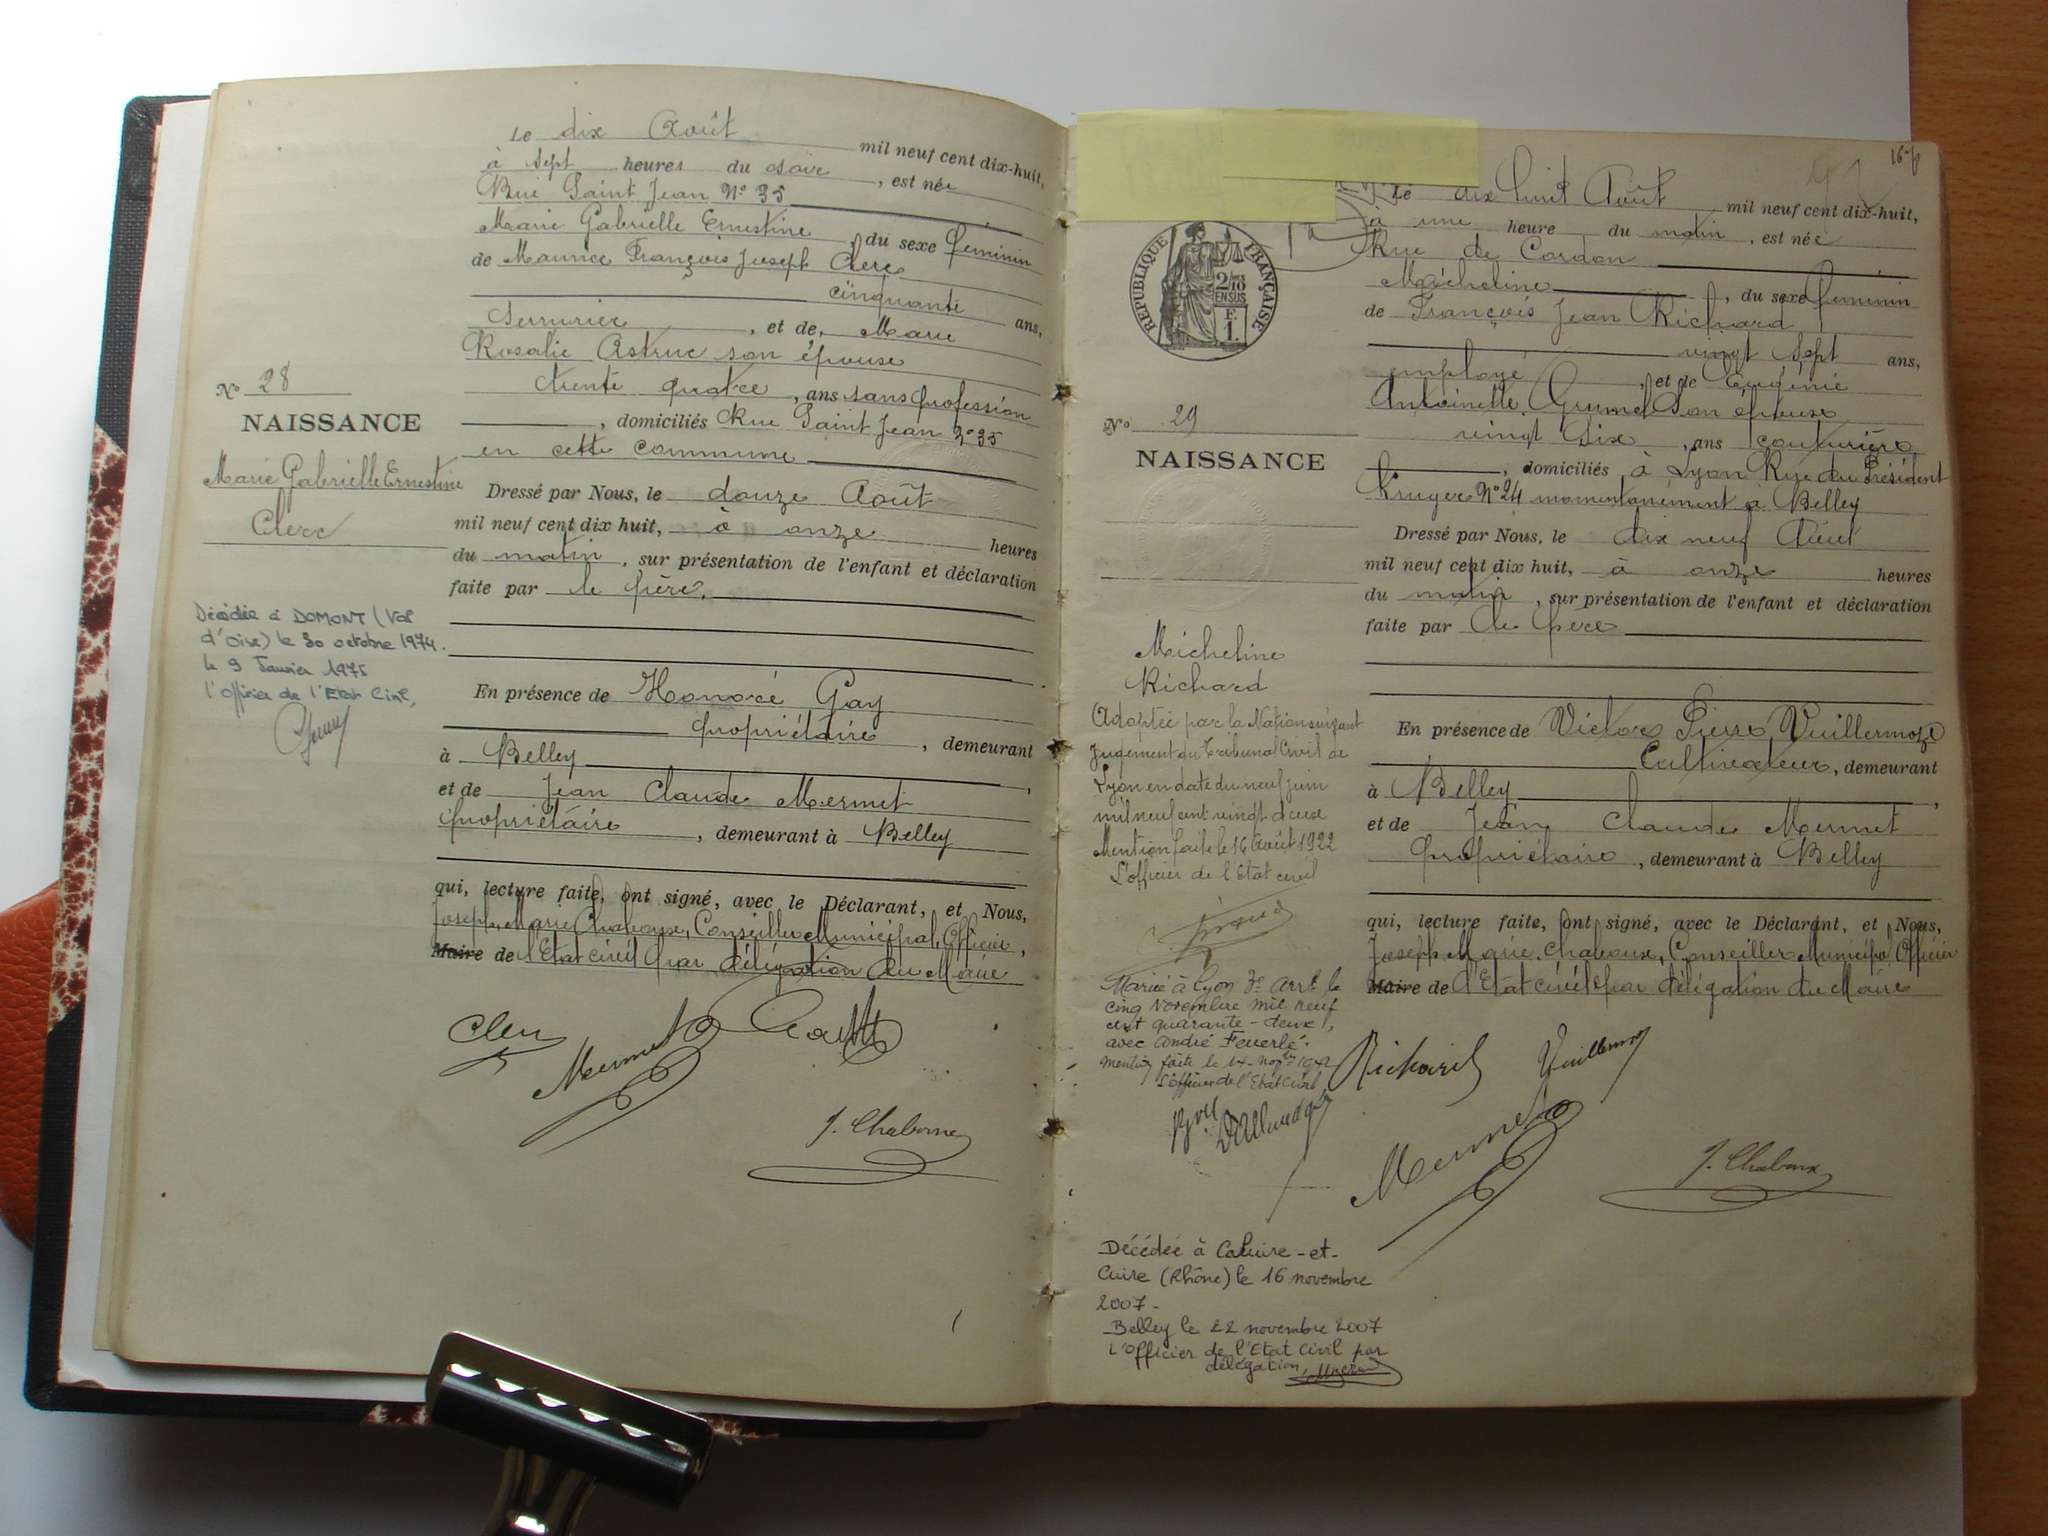 Le dix Août mil neuf cent dix-huit,
à sept heures du soir, est née
Rue Saint Jean N° 35
Marie Gabrielle Ernestine, du sexe féminin
de Maurice François Joseph Clerc
cinquante ans,
Serrurier, et de, Marie
Rosalie Astruc son épouse
trente quatre, ans sans profession
, domiciliés Rue Saint Jean n° 35
en cette commune
Dressé par Nous, le douze Août
mil neuf cent dix huit, à onze heures
du matin, sur présentation de l'enfant et déclaration
faite par le père.
En présence de Honoré Gay
propriétaire, demeurant
à Belley,
et de Jean Claude Mermet
propriétaire, demeurant à Belley
qui, lecture faite, ont signé, avec le Déclarant, et Nous,
Joseph, Marie Chaboux, Conseiller Municipal, Officier,
Maire de l'Etat civil par délégation du Maire
Clerc
Mermet
J. Chaboux
N° 28
NAISSANCE
Marie Gabrielle Ernestine
Clerc
Décédée à DOMONT (Val
d'Oise) le 30 octobre 1974.
le 9 Janvier 1975
l'Officier de l'Etat Civil,
16
Le dix huit Août mil neuf cent dix-huit,
à une heure du matin, est née
Rue de Cordon
Micheline, du sexe féminin
de François Jean Richard
vingt sept ans,
employé, et de Eugénie
Antoinette Grumel son épouse
vingt six, ans couturière
, domiciliés à Lyon Rue du Président
Kruger N° 24 momentanément à Belley
Dressé par Nous, le dix neuf Août
mil neuf cent dix huit, à onze heures
du matin, sur présentation de l'enfant et déclaration
faite par le père
En présence de Victor Pierre Vuillermoz
Cultivateur, demeurant
à Belley,
et de Jean Claude Mermet
propriétaire, demeurant à Belley
qui, lecture faite, ont signé, avec le Déclarant, et Nous,
Joseph Marie Chaboux, Conseiller Municipal Officier
Maire de l'Etat civil par délégation du Maire
Richard
Vuillermoz
Mermet
J. Chaboux
RÉPUBLIQUE FRANÇAISE
2/10
EN SUS
F.
1.
N° 29
NAISSANCE
Micheline
Richard
Adoptée par la Nation suivant
jugement du Tribunal Civil de
Lyon en date du neuf juin
mil neuf cent vingt deux
Mention faite le 16 Août 1922
L'officier de l'Etat civil
Mariée à Lyon 7e Arrt le
cinq Novembre mil neuf
cent quarante-deux,
avec André Feuerlé.
Mention faite le 14 Novbre 1942
L'officier de l'Etat Civil,
Décédée à Caluire-et-
Cuire (Rhône) le 16 novembre
2007.
Belley le 22 novembre 2007
L'Officier de l'Etat Civil par
délégation,